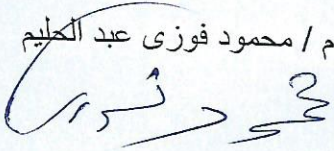 م / محمود فوزى عبد الحليم